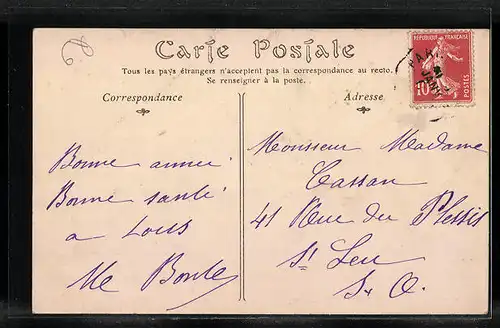 Carte Postale
Tous les pays étrangers n'acceptent pas la correspondance au recto.
Se renseigner à la poste.
Correspondance
Adresse
REPUBLIQUE FRANÇAISE
10
POSTES
PAR
JANV
Bonne année
Bonne santé
a tous
Monsieur Madame
Cassan
41 Rue du Plessis
St Leu
S. O.